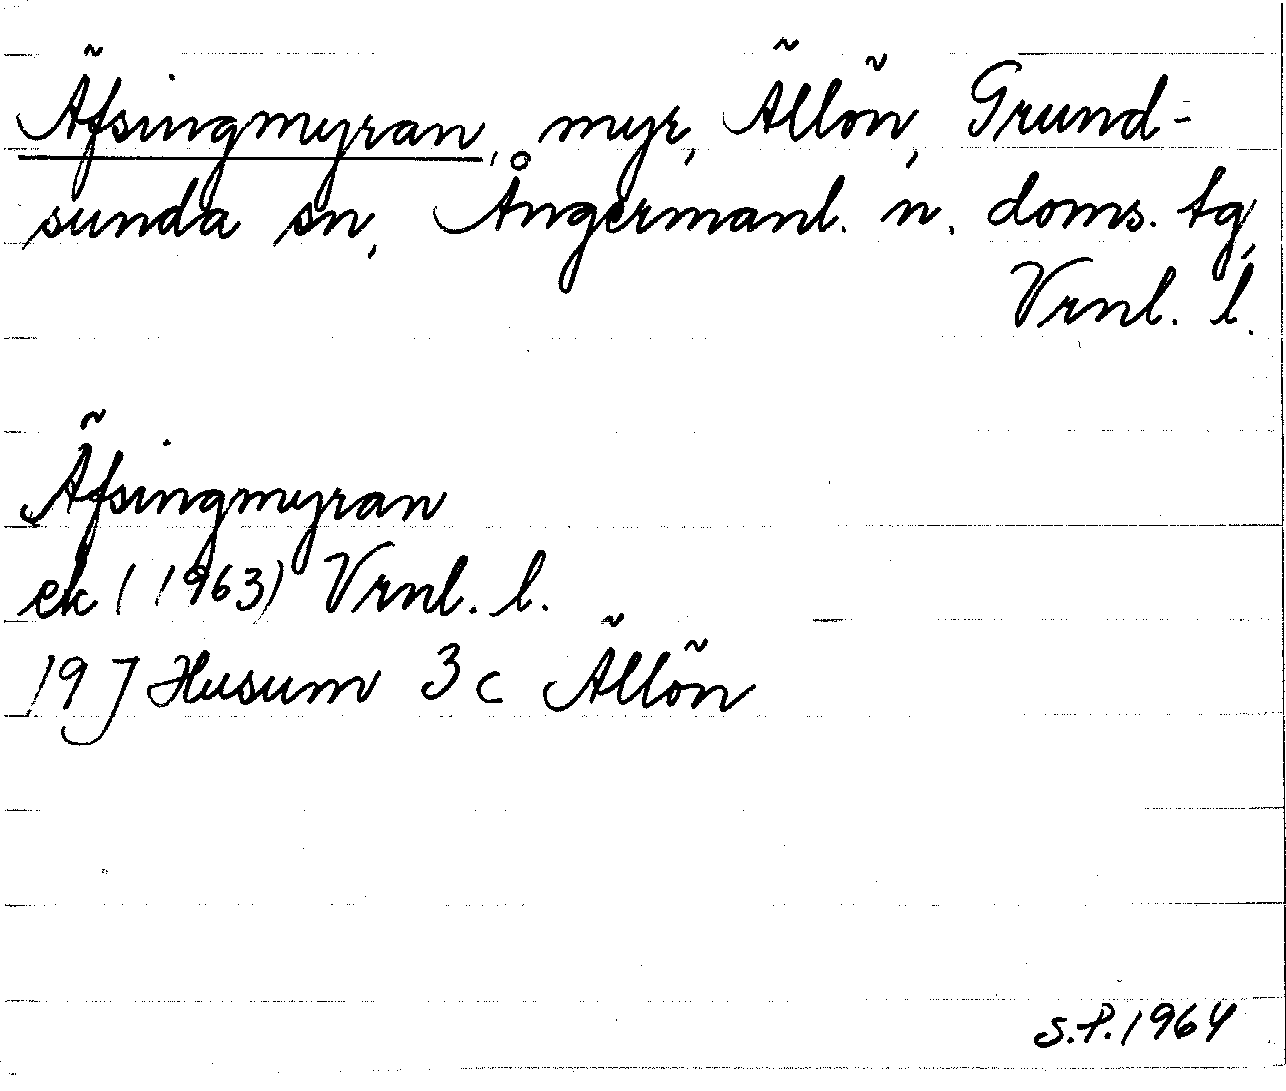 Äfsingmyran, myr, Ällön, Grund-
sunda sn, Ångermanl. n. doms. tg,
Vrnl. l.
Äfsingmyran
ek (1963) Vrnl. l.
19 J Husum 3 c Ällön
S.P. 1964